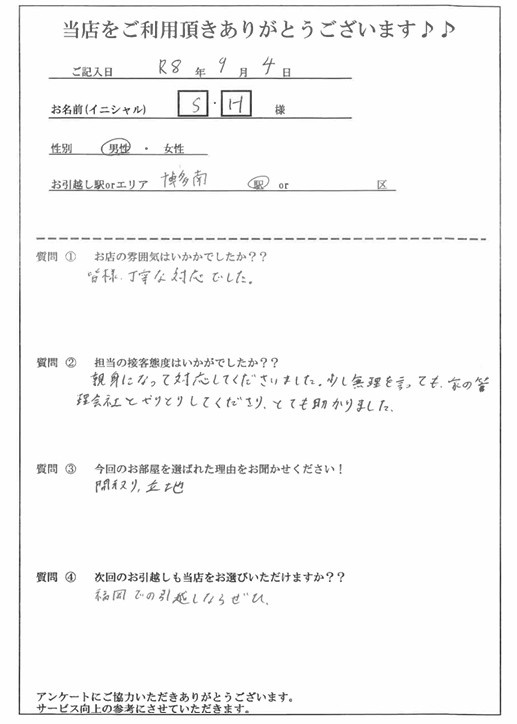 当店をご利用頂きありがとうございます♪♪
ご記入日 R8 年 9 月 4 日
お名前(イニシャル) S・H 様
性別 男性 ・ 女性
お引越し駅orエリア 博多南 駅 or 区
質問 ① お店の雰囲気はいかかでしたか？？
皆様、丁寧な対応でした。
質問 ② 担当の接客態度はいかがでしたか？？
親身になって対応してくださいました。少し無理を言っても、家の管
理会社とやりとりしてくださり、とても助かりました。
質問 ③ 今回のお部屋を選ばれた理由をお聞かせください！
間取り、立地
質問 ④ 次回のお引越しも当店をお選びいただけますか？？
福岡での引越しならぜひ、
アンケートにご協力いただきありがとうございます。
サービス向上の参考にさせていただきます。